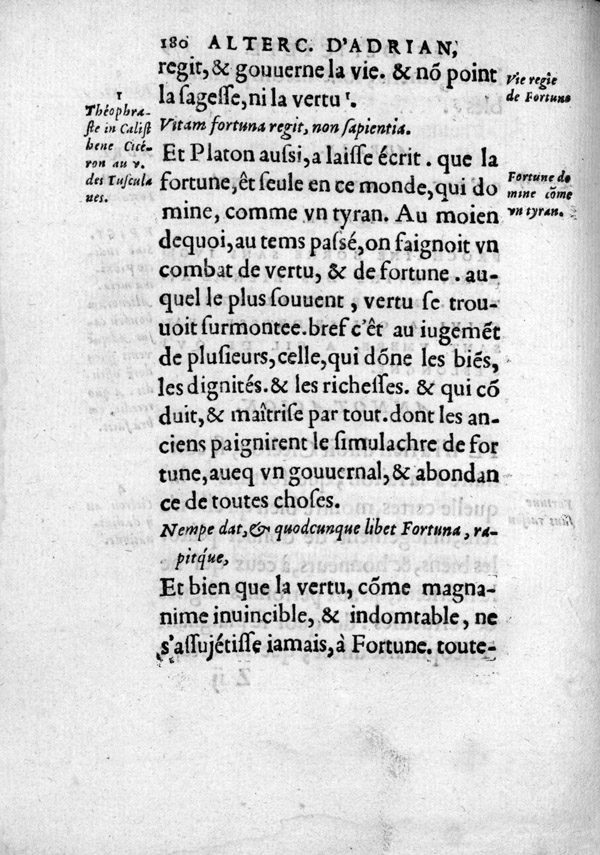 180 ALTERC. D'ADRIAN,
regit, & gouuerne la vie. & nõ point
la sagesse, ni la vertu ¹.
Vitam fortuna regit, non sapientia.
Et Platon aussi, a laissé écrit. que la
fortune, êt seule en ce monde, qui do
mine, comme vn tyran. Au moien
dequoi, au tems passé, on faignoit vn
combat de vertu, & de fortune. au-
quel le plus souuent, vertu se trou-
uoit surmontee. bref c'êt au iugemẽt
de plusieurs, celle, qui dõne les biẽs,
les dignités. & les richesses. & qui cõ
duit, & maîtrise par tout. dont les an-
ciens paignirent le simulachre de for
tune, aueq vn gouuernal, & abondan
ce de toutes choses.
Nempe dat, & quodcunque libet Fortuna, ra-
pitq́ue,
Et bien que la vertu, cõme magna-
nime inuincible, & indomtable, ne
s'assujétisse iamais, à Fortune. toute-
1
Théophra-
ste in Calist
hene Cicé-
ron au v.
des Tuscula
nes.
Vie regie
de Fortune
Fortune do
mine cõme
vn tyran.